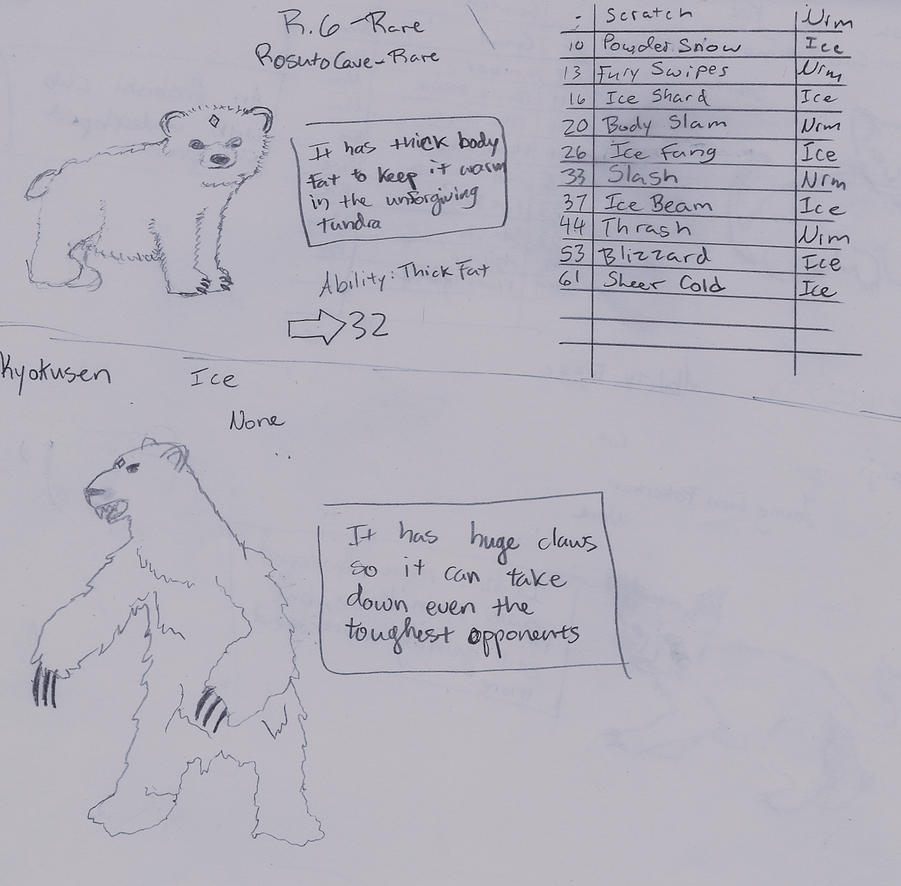 R.6 - Rare
Rosuto Cave - Rare
It has thick body
fat to keep it warm
in the unforgiving
tundra
Ability: Thick Fat
32
- Scratch Nrm
10 Powder Snow Ice
13 Fury Swipes Nrm
16 Ice Shard Ice
20 Body Slam Nrm
26 Ice Fang Ice
33 Slash Nrm
37 Ice Beam Ice
44 Thrash Nrm
53 Blizzard Ice
61 Sheer Cold Ice
Kyokusen Ice
None
It has huge claws
so it can take
down even the
toughest opponents